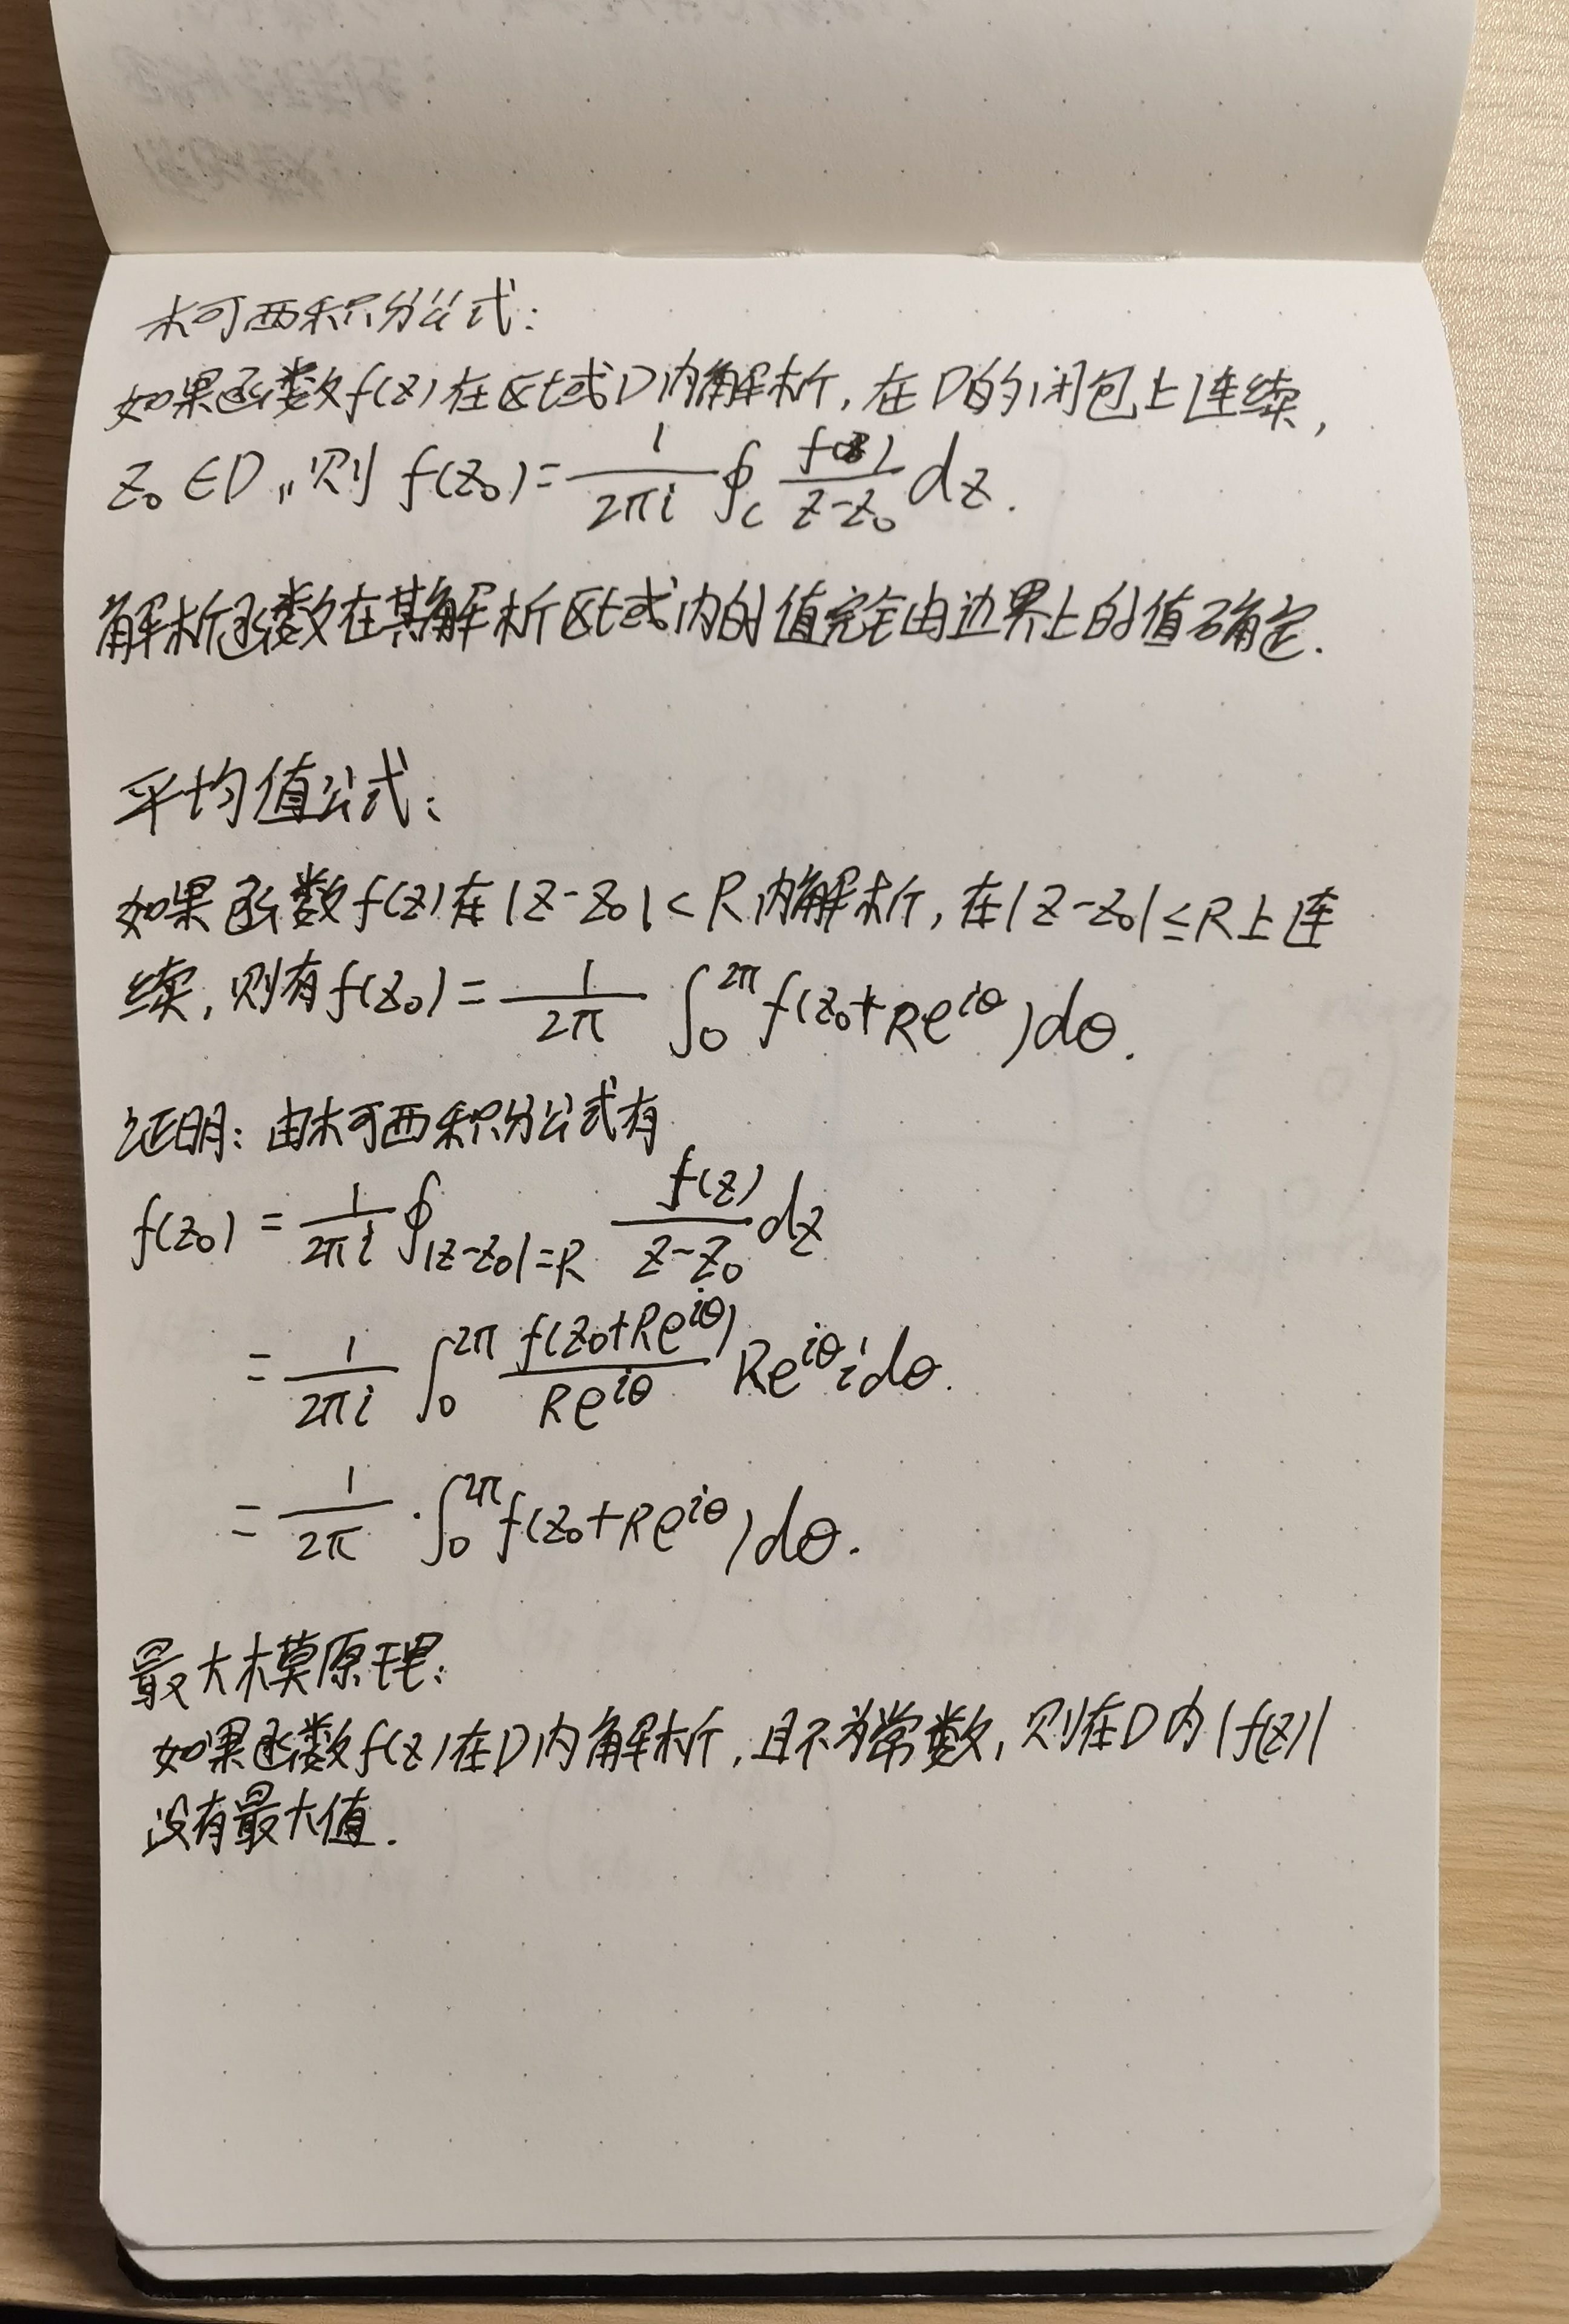 柯西积分公式：
如果函数f(z)在区域D内解析，在D的闭包上连续，
z₀∈D，则 f(z₀)=\frac{1}{2πi}∮_C \frac{f(z)}{z-z₀}dz.
解析函数在其解析区域内的值完全由边界上的值确定.
平均值公式：
如果函数f(z)在|z-z₀|<R内解析，在|z-z₀|≤R上连
续，则有f(z₀)=\frac{1}{2π}∫_0^{2π}f(z₀+Re^{iθ})dθ.
证明：由柯西积分公式有
f(z₀)=\frac{1}{2πi}∮_{|z-z₀|=R}\frac{f(z)}{z-z₀}dz
=\frac{1}{2πi}∫_0^{2π}\frac{f(z₀+Re^{iθ})}{Re^{iθ}}Re^{iθ}idθ.
=\frac{1}{2π}·∫_0^{2π}f(z₀+Re^{iθ})dθ.
最大模原理：
如果函数f(z)在D内解析，且不为常数，则在D内|f(z)|
没有最大值.